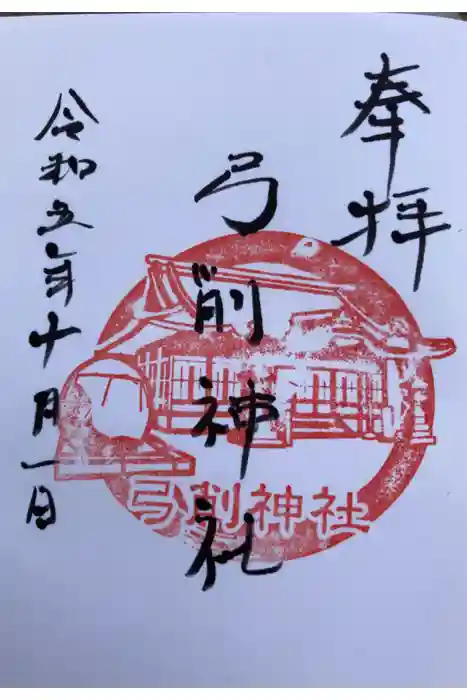 奉拝
弓削神社
弓削神社
令和五年十月一日